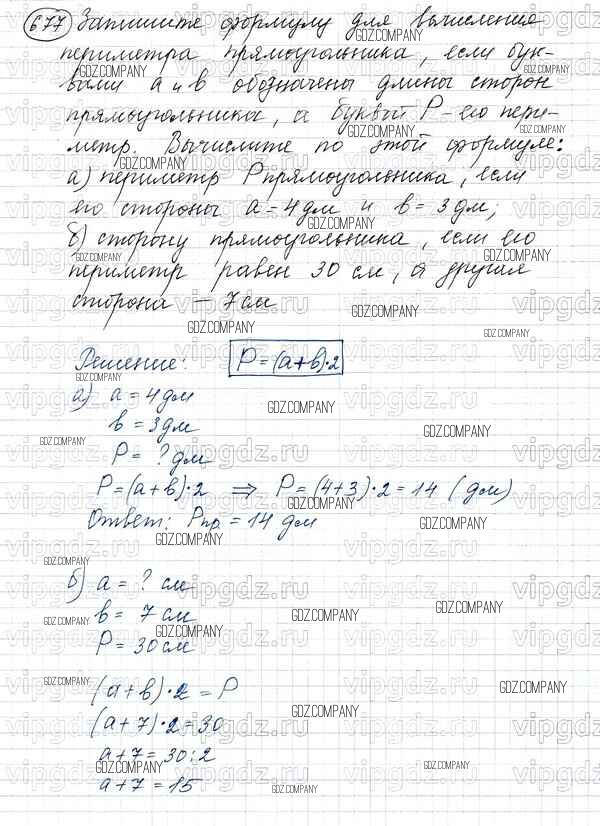 677 Запишите формулу для вычисления
периметра прямоугольника, если бук-
вами a и b обозначены длины сторон
прямоугольника, а буквой P - его пери-
метр. Вычислите по этой формуле:
а) периметр P прямоугольника, если
его стороны a = 4 дм и b = 3 дм;
б) сторону прямоугольника, если его
периметр равен 30 см, а другая
сторона - 7 см
Решение: P = (a + b) · 2
а) a = 4 дм
b = 3 дм
P = ? дм
P = (a + b) · 2 ⇒ P = (4 + 3) · 2 = 14 (дм)
Ответ: Pпр = 14 дм
б) a = ? см
b = 7 см
P = 30 см
(a + b) · 2 = P
(a + 7) · 2 = 30
a + 7 = 30 : 2
a + 7 = 15
GDZ.COMPANY
vipgdz.ru